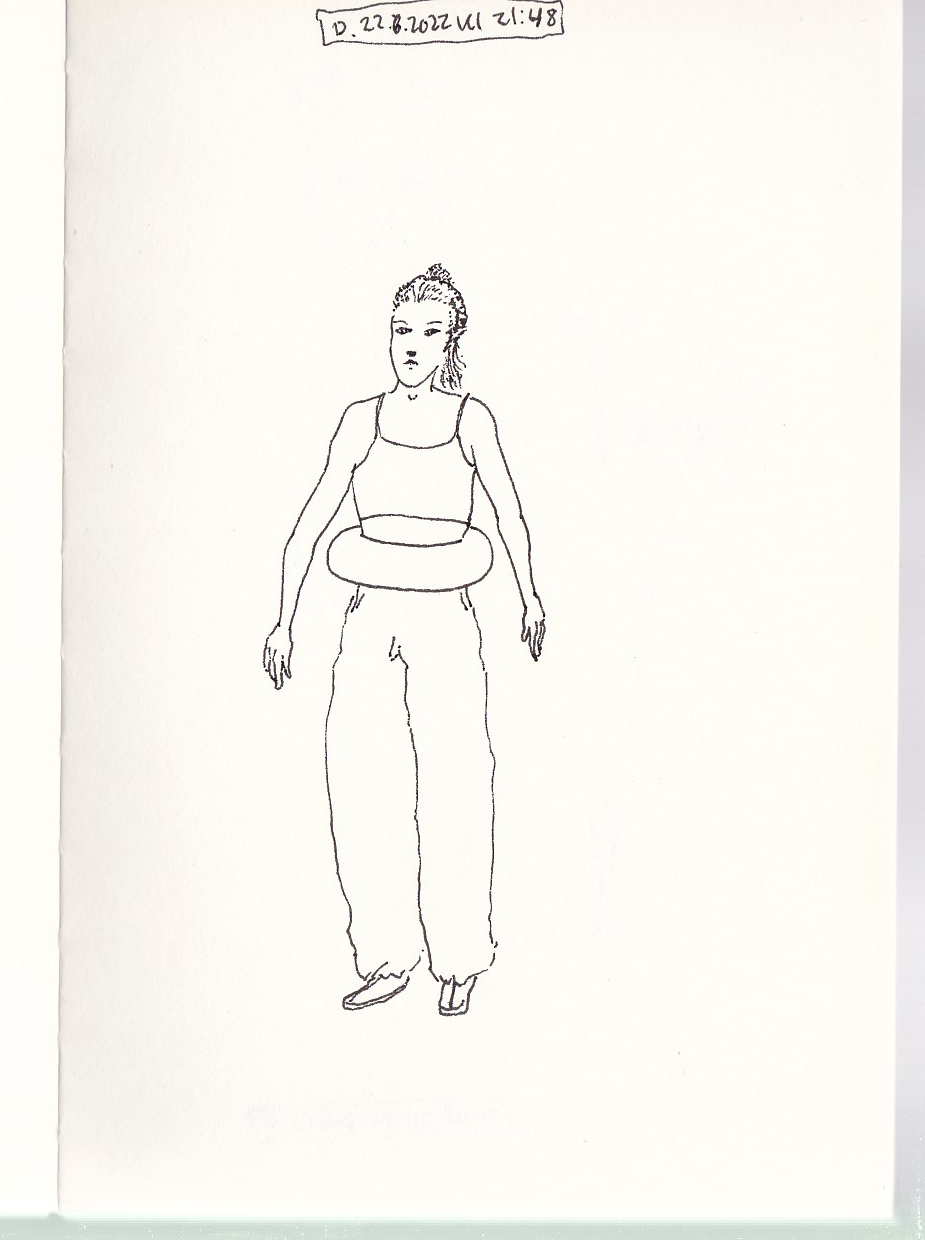 D. 22.8.2022 KI 21:48